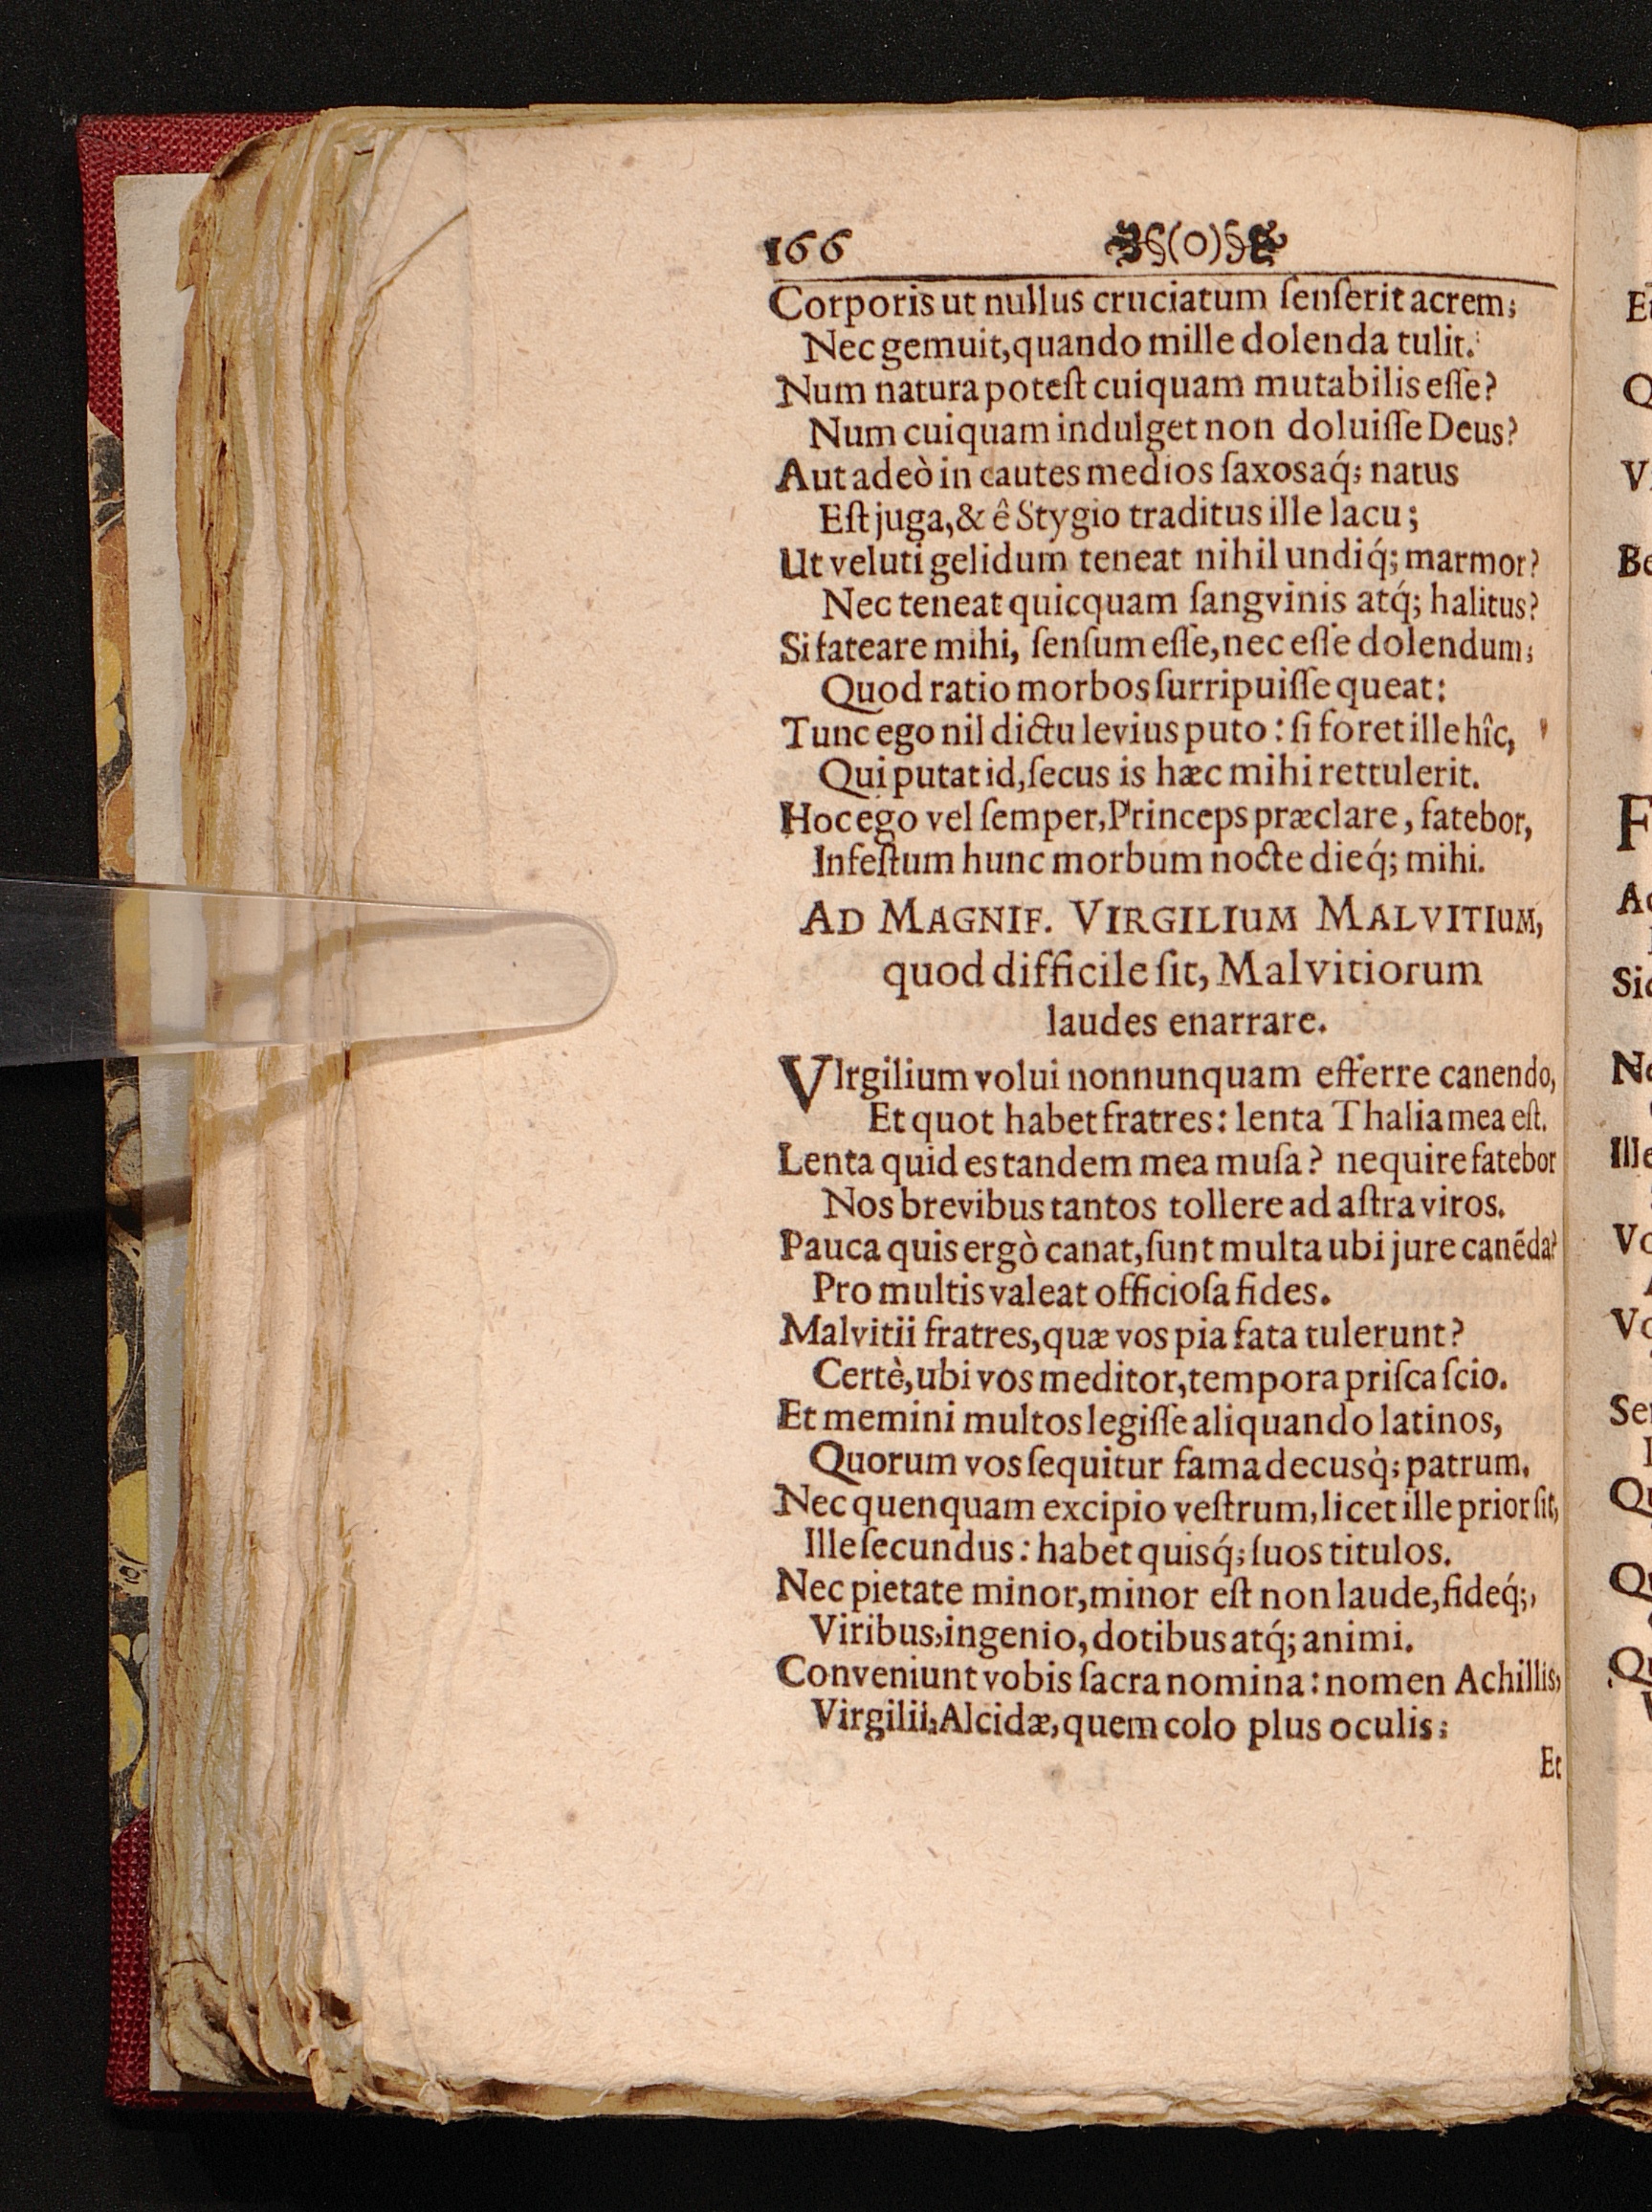 166 ❧§(O)§❧
Corporis ut nullus cruciatum ſenſerit acrem;
Nec gemuit, quando mille dolenda tulit.
Num natura poteſt cuiquam mutabilis eſſe?
Num cuiquam indulget non doluiſſe Deus?
Aut adeò in cautes medios ſaxosaq́; natus
Eſt juga, & ê Stygio traditus ille lacu;
Ut veluti gelidum teneat nihil undiq́; marmor?
Nec teneat quicquam ſangvinis atq́; halitus?
Si fateare mihi, ſenſum eſſe, nec eſſe dolendum;
Quod ratio morbos ſurripuiſſe queat:
Tunc ego nil dictu levius puto: ſi foret ille hîc,
Qui putat id, ſecus is hæc mihi rettulerit.
Hoc ego vel ſemper, Princeps præclare, fatebor,
Infeſtum hunc morbum nocte dieq́; mihi.
AD MAGNIF. VIRGILIUM MALVITIUM,
quod difficile ſit, Malvitiorum
laudes enarrare.
VIrgilium volui nonnunquam efferre canendo,
Et quot habet fratres: lenta Thalia mea eſt.
Lenta quid es tandem mea muſa? nequire fatebor
Nos brevibus tantos tollere ad aſtra viros.
Pauca quis ergò canat, ſunt multa ubi jure canēda?
Pro multis valeat officioſa fides.
Malvitii fratres, quæ vos pia fata tulerunt?
Certè, ubi vos meditor, tempora priſca ſcio.
Et memini multos legiſſe aliquando latinos,
Quorum vos ſequitur fama decusq́; patrum.
Nec quenquam excipio veſtrum, licet ille prior ſit,
Ille ſecundus: habet quisq́; ſuos titulos.
Nec pietate minor, minor eſt non laude, fideq́;,
Viribus, ingenio, dotibus atq́; animi.
Conveniunt vobis ſacra nomina: nomen Achillis,
Virgilii, Alcidæ, quem colo plus oculis;
Et